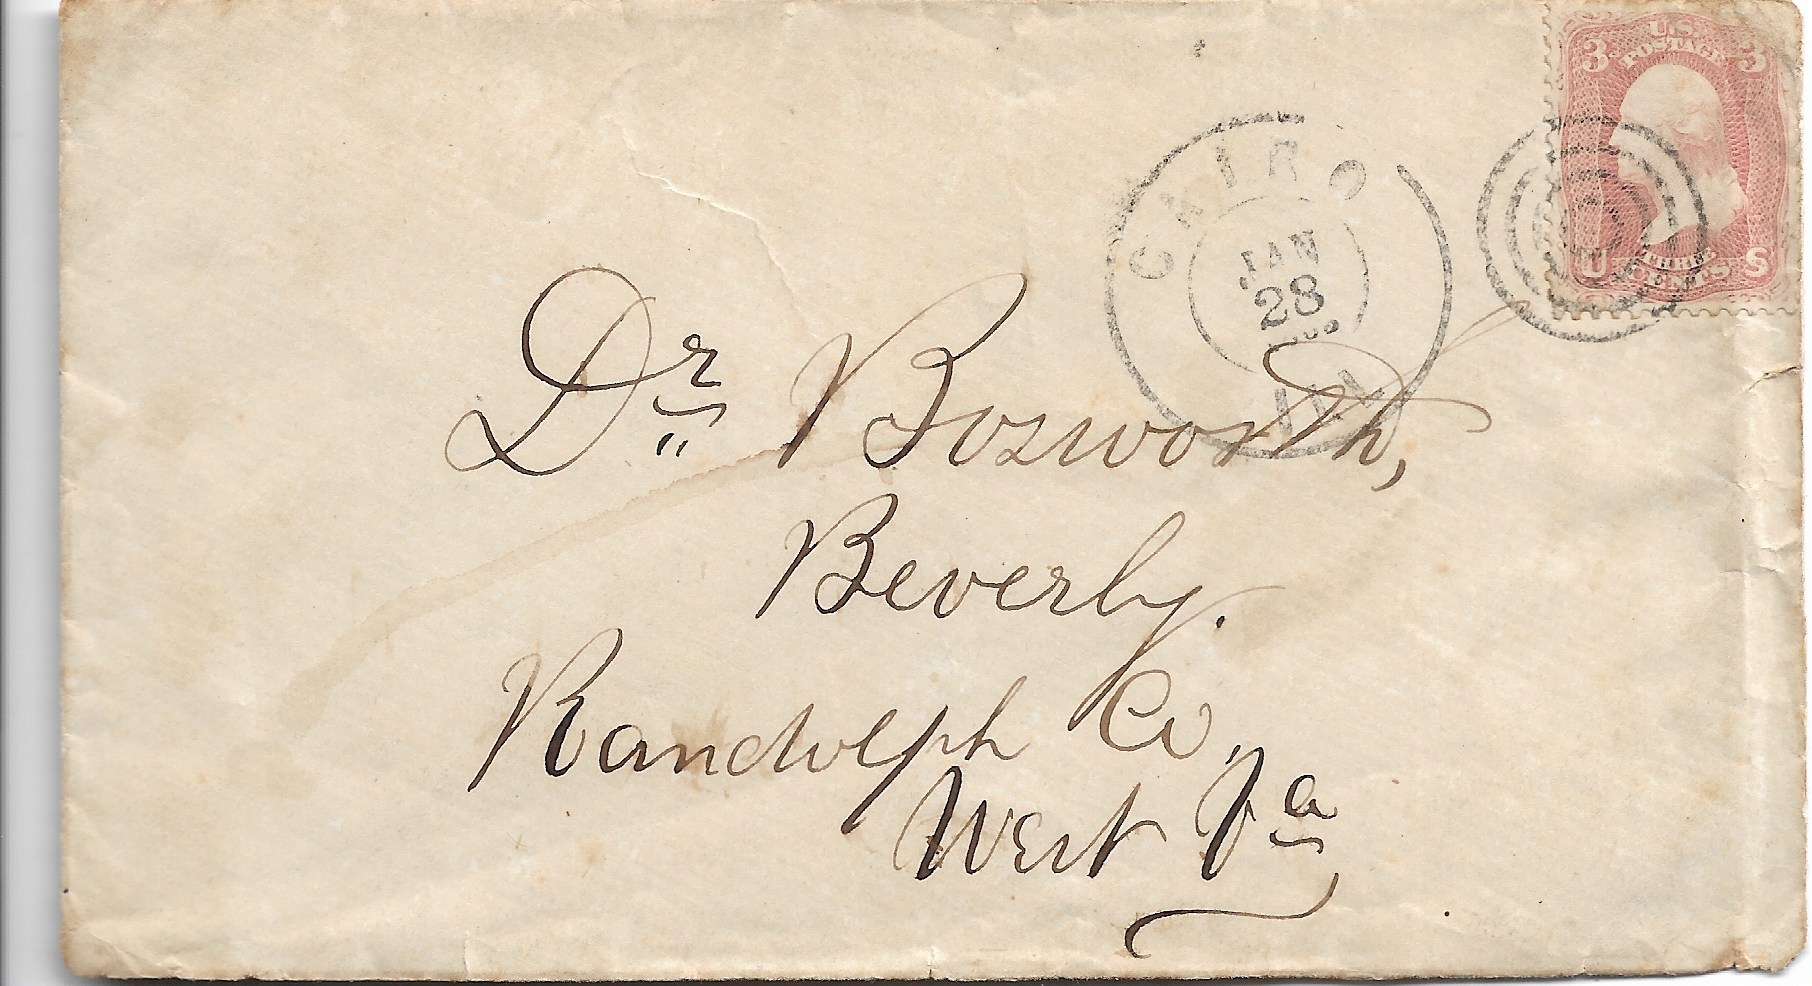 U.S.
POSTAGE
3 3
THREE
U CENTS S
CAIRO
JAN
28
Ill
Dr. Bosworth,
Beverly.
Randolph Co,
West Va